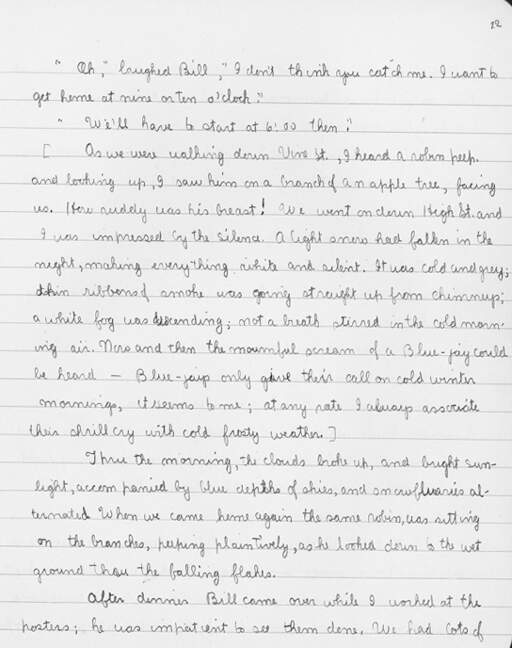 22
" Oh," laughed Bill, "I don't think you catch me. I want to
get home at nine or ten o'clock."
" We'll have to start at 6:00 then."
[ As we were walking down Vine St., I heard a robin peep.
and looking up, I saw him on a branch of an apple tree, facing
us. How ruddy was his breast! We went on down High St. and
I was impressed by the silence. A light snow had fallen in the
night, making everything white and silent. It was cold and grey;
thin ribbons of smoke was going straight up from chimneys;
a white fog was descending; not a breath stirred in the cold morn-
ing air. Now and then the mournful scream of a Blue-jay could
be heard — Blue-jays only give their call on cold winter
mornings, it seems to me; at any rate I always associate
their shrill cry with cold frosty weather.]
Thru the morning, the clouds broke up, and bright sun-
light, accompanied by blue depths of skies, and snowflurries al-
ternated. When we came home again the same robin, was sitting
on the branches, peeping plaintively, as he looked down to the wet
ground thru the falling flakes.
After dinner Bill came over while I worked at the
posters; he was impatient to see them done. We had lots of